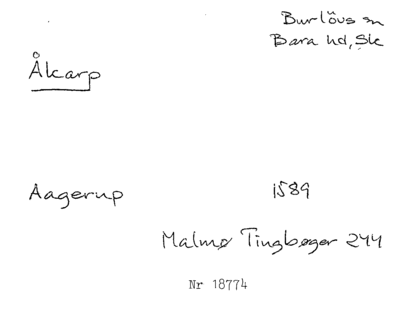 Burlövs sn
Bara hd, Sk
Åkarp
Aagerup 1589
Malmø Tingbøger 244
Nr 18774